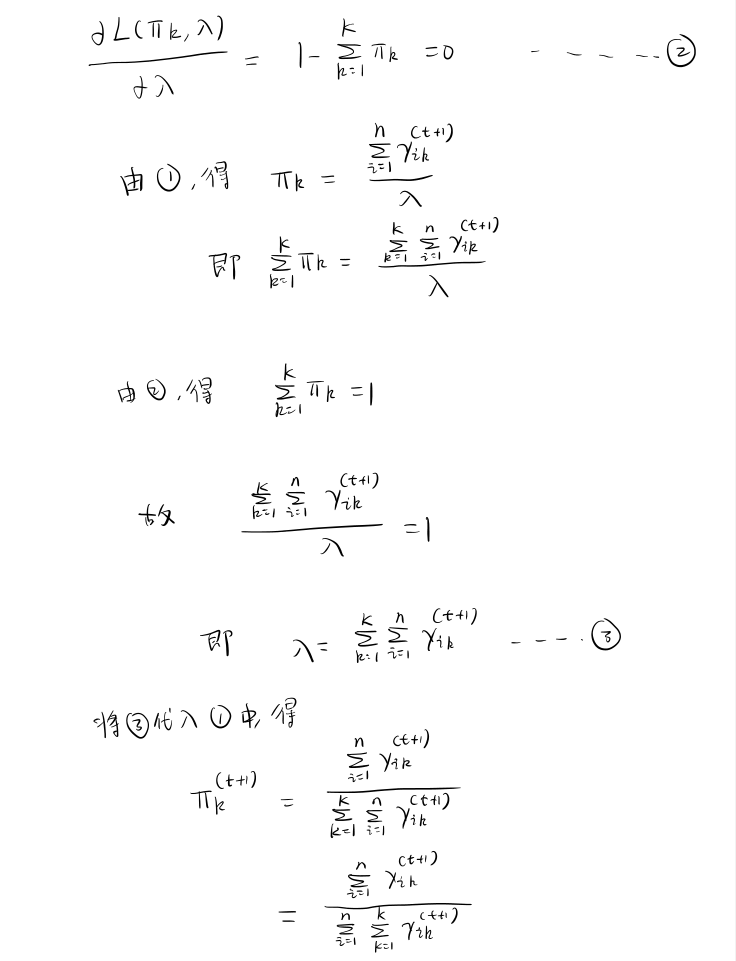 ∂L(πk, λ)/∂λ = 1 - ∑_{k=1}^{K} πk = 0 - - - - - ②
由①,得 πk = ∑_{i=1}^{n} γ_{ik}^{(t+1)} / λ
即 ∑_{k=1}^{K} πk = ∑_{k=1}^{K} ∑_{i=1}^{n} γ_{ik}^{(t+1)} / λ
由②,得 ∑_{k=1}^{K} πk = 1
故 ∑_{k=1}^{K} ∑_{i=1}^{n} γ_{ik}^{(t+1)} / λ = 1
即 λ = ∑_{k=1}^{K} ∑_{i=1}^{n} γ_{ik}^{(t+1)} - - - - ③
将③代入①中,得
π_k^{(t+1)} = ∑_{i=1}^{n} γ_{ik}^{(t+1)} / ∑_{k=1}^{K} ∑_{i=1}^{n} γ_{ik}^{(t+1)}
= ∑_{i=1}^{n} γ_{ik}^{(t+1)} / ∑_{i=1}^{n} ∑_{k=1}^{K} γ_{ik}^{(t+1)}